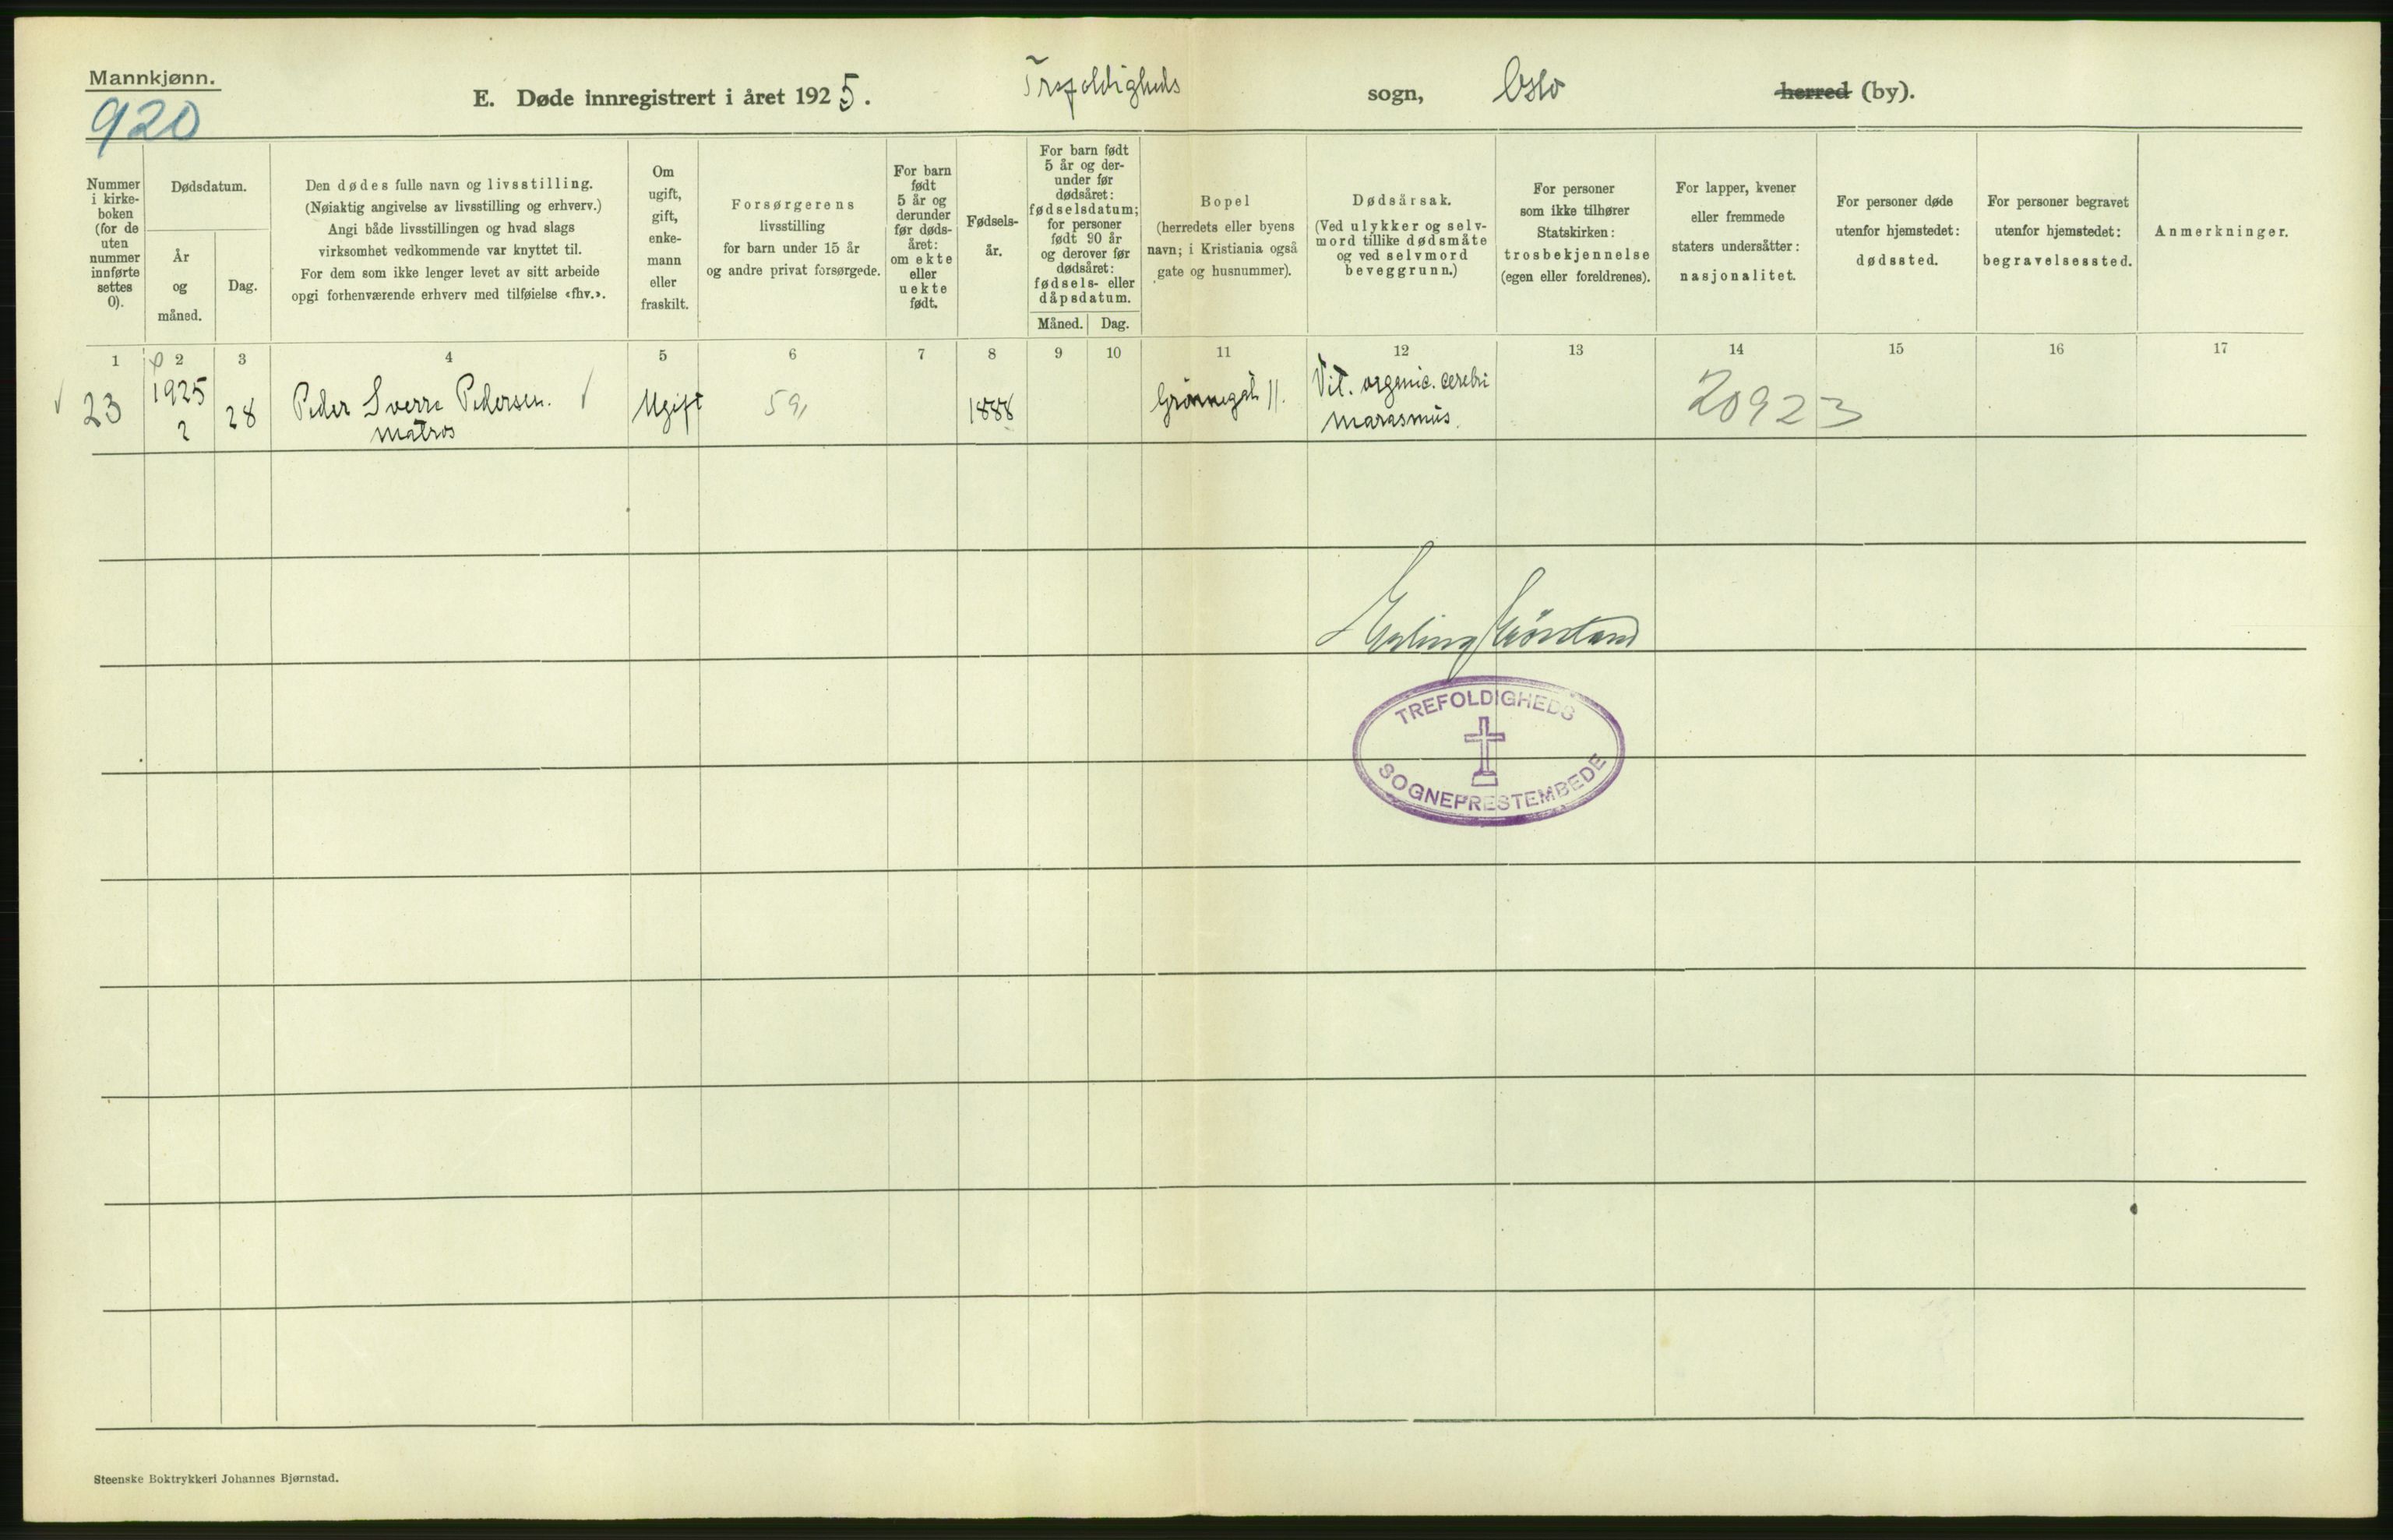 Mannkjønn.
920
E. Døde innregistrert i året 1925. Trefoldigheds sogn, Oslo herred (by).
Nummer
i kirke-
boken
(for de
uten
nummer
innførte
settes
0).
Dødsdatum.
År
og
måned.
Dag.
Den dødes fulle navn og livsstilling.
(Nøiaktig angivelse av livsstilling og erhverv.)
Angi både livsstillingen og hvad slags
virksomhet vedkommende var knyttet til.
For dem som ikke lenger levet av sitt arbeide
opgi forhenværende erhverv med tilføielse «fhv.».
Om
ugift,
gift,
enke-
mann
eller
fraskilt.
Forsørgerens
livsstilling
for barn under 15 år
og andre privat forsørgede.
For barn
født
5 år og
derunder
før døds-
året:
om ekte
eller
uekte
født.
Fødsels-
år.
For barn født
5 år og der-
under før
dødsåret:
fødselsdatum;
for personer
født 90 år
og derover før
dødsåret:
fødsels- eller
dåpsdatum.
Måned. Dag.
Bopel
(herredets eller byens
navn; i Kristiania også
gate og husnummer).
Dødsårsak.
(Ved ulykker og selv-
mord tillike dødsmåte
og ved selvmord
beveggrunn.)
For personer
som ikke tilhører
Statskirken:
trosbekjennelse
(egen eller foreldrenes).
For lapper, kvener
eller fremmede
staters undersåtter:
nasjonalitet.
For personer døde
utenfor hjemstedet:
dødssted.
For personer begravet
utenfor hjemstedet:
begravelsessted.
Anmerkninger.
1 2 3 4 5 6 7 8 9 10 11 12 13 14 15 16 17
23
1925
2
28
Peder Sverre Pedersen.
matros
Ugift
59,
1888
Grønnegat 11.
Vit. organic. cerebri
marasmus.
20923
Erling Grønland
TREFOLDIGHEDS
SOGNEPRESTEMBEDE
Steenske Boktrykkeri Johannes Bjørnstad.